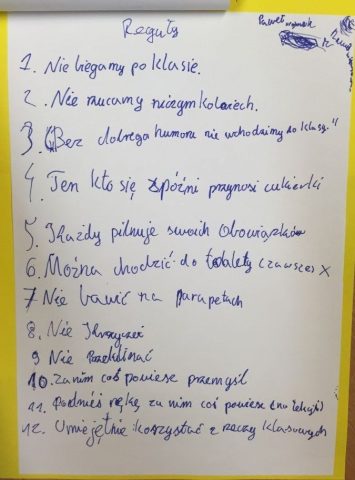 Reguły
Paweł
1. Nie biegamy po klasie.
2. Nie rzucamy niczym kolwiech.
3. "Bez dobrego humoru nie wchodzimy do klasy."
4. Ten kto się spóźni przynosi cukierki
5. Każdy pilnuje swoich obowiązków
6. Można chodzić do toalety (zawsze)
7 Nie bawić na parapetach
8. Nie krzyczeć
9 Nie Przeklinać
10. Zanim coś powiesz przemyśl
11. Podnieś rękę za nim coś powiesz (na lekcji)
12. Umiejętnie korzystać z rzeczy klasowych